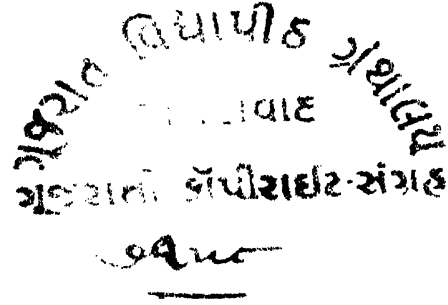 ગુજરાત વિદ્યાપીઠ ગ્રંથાલય
ગુજરાતી કૉપીરાઈટ-સંગ્રહ